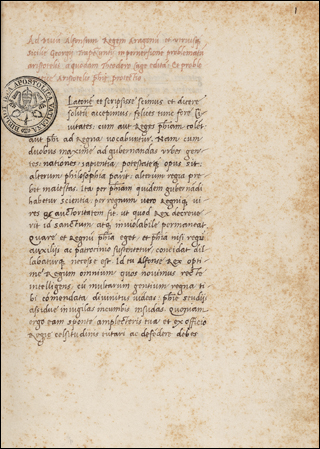 1
Ad Divũ Alfonsum Regem Aragonũ et utriusq
Siciliæ Georgii Trapezuntii in perversionẽ problematũ
aristotelis a quodam Theodoro Cage editã: Ex proble
matice Aristotelis phiæ protectio.
BIBLIOTECA APOSTOLICA VATICANA
Platonẽ et scripsisse scimus, et dicere
solitũ accepimus, felices tunc fore Ci
vitates, cum aut Reges phiam colẽt
aut phi ad Regna vocabuntur. Nam cum
duobus maxime ad gubernandas urbes gen
tes, nationes sapientia, potestateq opus sit.
alterum philosophia parit, alterum regia prę
bet maiestas. Ita per phiam quidem gubernãdi
habetur scientia, per regnum vero Regnisq vi
res et auctoritatem fit, ut quod Rex decreve
rit id sanctum atq inviolabile permaneat.
Quare et Regnũ phia eget, et phia nisi regio
auxilio ac patrocinio sustentetur, concidat dis
labaturq necesse est. Id tu Alfonse Rex opti
me Regum omnium, quos novimus recte
intelligens, cũ multarum gentium regna ti
bi cõmendata divinitus videas, phiæ studijs
assidue invigilas incumbis insudas. Quoniam
ergo eam sponte amplecteris tua, et ex officio
Regiæ celsitudinis tutari ac defẽdere debes